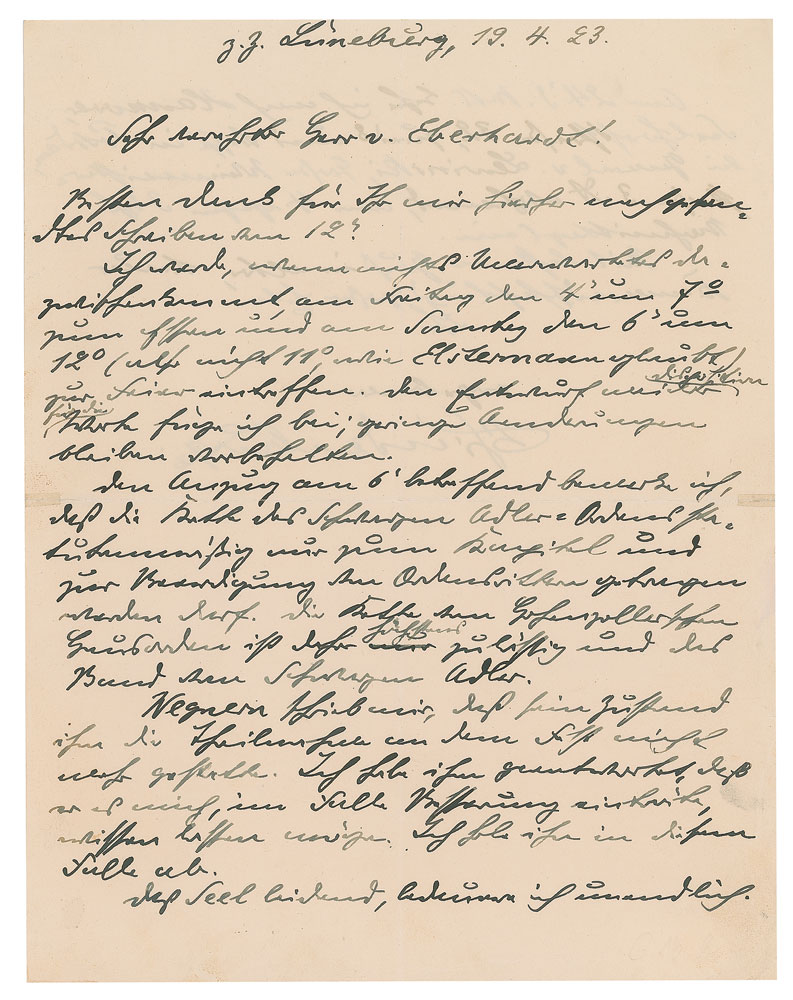 z.Z. Lüneburg, 19. 4. 23.
Sehr verehrter Herr v. Eberhardt!
Besten Dank für Ihr mir hierher nachgesen=
detes Schreiben vom 12?
Ich werde, wenn nichts Unerwartetes da=
zwischenkommt, am Freitag den 4' um 7º
zum Essen und am Sonntag den 6' um
12º (also nicht 11º, wie Elstermann glaubt)
zur Feier eintreffen. Den Entwurf meiner
für die
Worte füge ich bei; geringe Änderungen
bleiben vorbehalten.
Den Anzug am 6' betreffend bemerke ich,
daß die Kette des Schwarzen Adler=Ordens sta=
tutenmäßig nur zum Kapitel und
zur Beerdigung von Ordensrittern getragen
werden darf. Die Kette vom Hohenzollerschen
höchstens
Hausorden ist daher nur zulässig und das
Band vom Schwarzen Adler.
Wegnern schrieb mir, daß sein Zustand
ihm die Theilnahme an dem Fest nicht
mehr gestatte. Ich habe ihm geantwortet, daß
er es mich, im Falle Besserung einträte,
wissen lassen möge. Ich hole ihn in diesem
Falle ab.
Daß Seel leidend, bedauere ich unendlich.